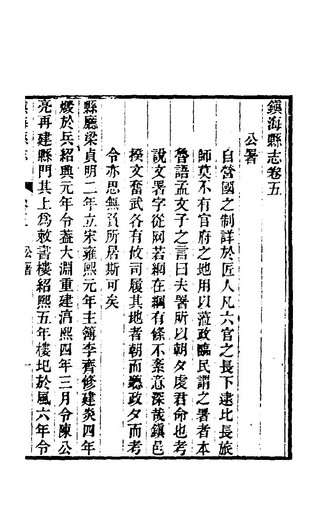 鎮海縣志卷五
公署
自營國之制詳於匠人凡六官之長下逮比長旅
師莫不有官府之地用以涖政臨民謂之署者本
魯語孟文子之言曰夫署所以朝夕虔君命也考
說文署字從网若網在綱有條不紊意深哉鎮邑
揆文奮武各有攸司履其地者朝而聽政夕而考
令亦思無負所居斯可矣
縣廳梁貞明二年立宋雍熙元年主簿李齊修建炎四年
燬於兵紹興元年令蓋大淵重建淳熙四年三月令陳公
亮再建縣門其上爲敕書樓紹熙五年樓圮於風六年令
公署